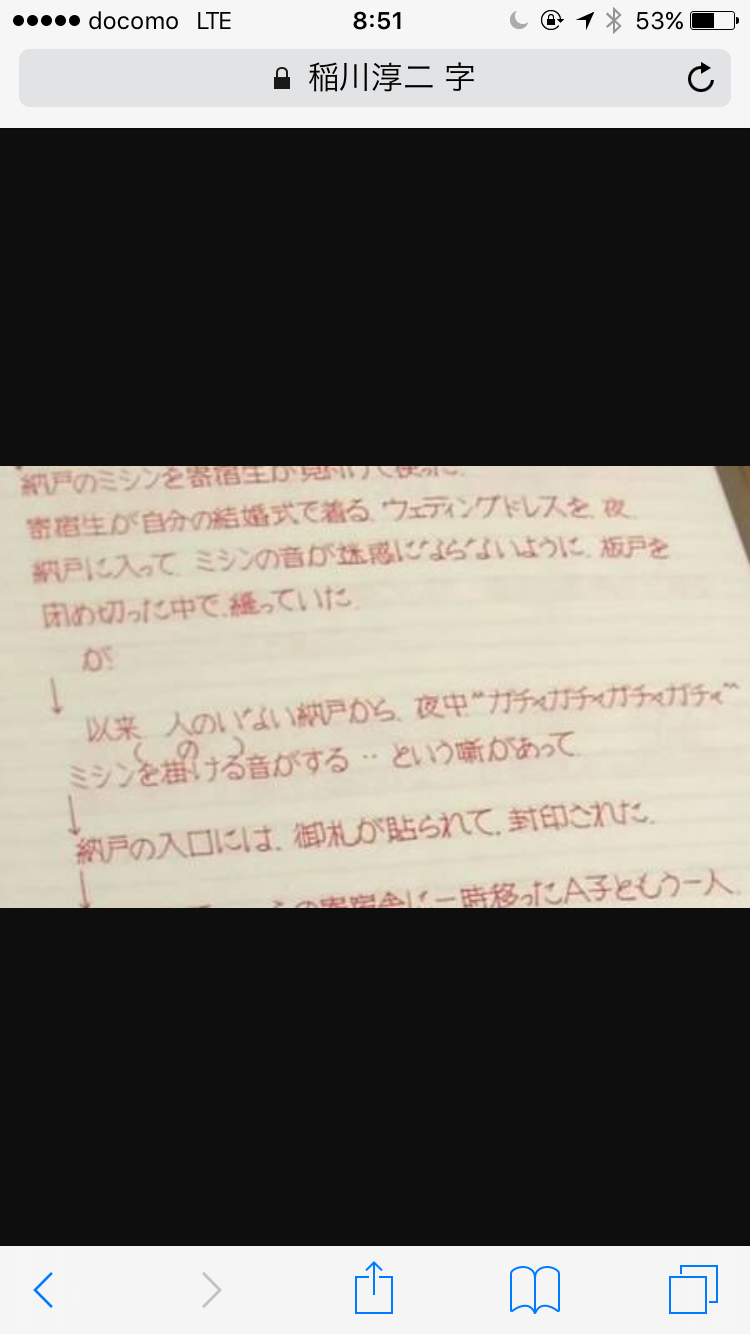 docomo LTE 8:51 53%
稲川淳二 字
納戸のミシンを寄宿生が見付けて使った.
寄宿生が自分の結婚式で着る ウェディングドレスを、夜
納戸に入って ミシンの音が迷惑にならないように、板戸を
閉め切った中で、縫っていた.
が
↓
以来 人のいない納戸から、夜中“ガチャガチャガチャガチャ”
ミシンを掛ける音がする‥という噺があって
↓
納戸の入口には、御札が貼られて、封印された.
↓
の寄宿舎に一時移ったA子ともう一人.